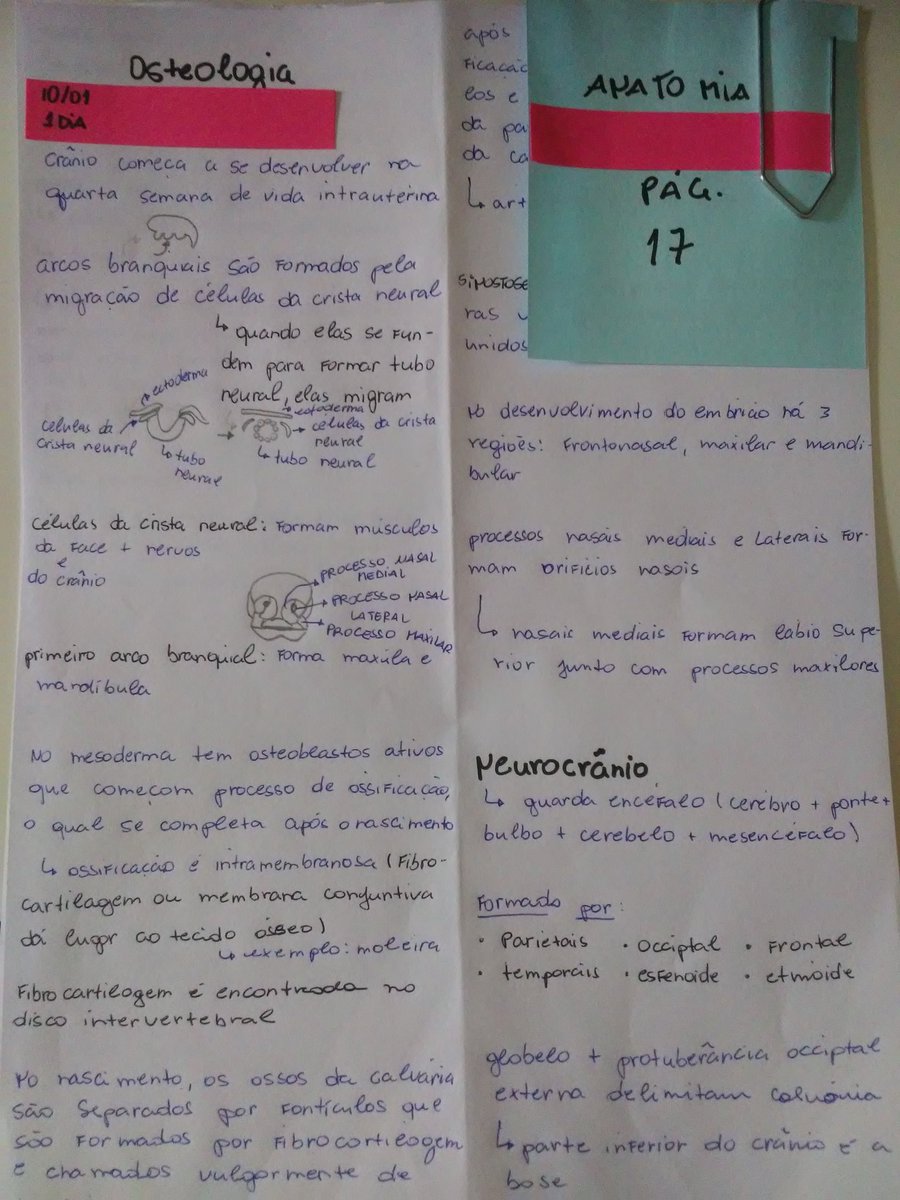 Osteologia
10/01
1 DIA
Crânio começa a se desenvolver na
quarta semana de vida intrauterina
arcos branquiais são formados pela
migração de células da crista neural
↳ quando elas se fun-
dem para formar tubo
neural, elas migram
ectoderma
células da
crista neural
↳ tubo
neural
ectoderma
células da crista
neural
↳ tubo neural
células da crista neural: formam músculos
da face + nervos
e
do crânio
PROCESSO NASAL
MEDIAL
PROCESSO NASAL
LATERAL
PROCESSO MAXILAR
primeiro arco branquial: forma maxila e
mandíbula
No mesoderma tem osteoblastos ativos
que começam processo de ossificação,
o qual se completa após o nascimento
↳ ossificação é intramembranosa (fibro-
cartilagem ou membrana conjuntiva
dá lugar ao tecido ósseo)
↳ exemplo: moleira
Fibrocartilagem é encontrada no
disco intervertebral
No nascimento, os ossos da calvária
são separados por fontículos que
são formados por fibrocartilogem
e chamados vulgarmente de
após
ficação
los e
da pa
da ca
↳ art
SINOSTOSE
ras
unidos
ANATOMIA
PÁG.
17
No desenvolvimento do embrião há 3
regiões: frontonasal, maxilar e mandi-
bular
processos nasais mediais e laterais for-
mam orifícios nasais
↳ nasais mediais formam lábio supe-
rior junto com processos maxilares
Neurocrânio
↳ guarda encéfalo (cérebro + ponte +
bulbo + cerebelo + mesencéfalo)
Formado por:
• Parietais • Occiptal • Frontal
• temporais • esfenoide • etmoide
globelo + protuberância occiptal
externa delimitam calvária
↳ parte inferior do crânio é a
base